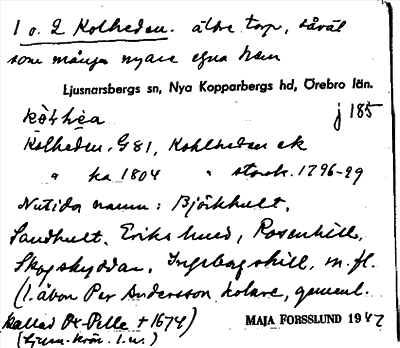 1 o. 2 Kolheden. äldre torp, såväl
som många nyare egna hem
Ljusnarsbergs sn, Nya Kopparbergs hd, Örebro län.
j 185
Kolheden. G 81, Kohlheden ek
" ka 1804 " storsk. 1796-99
Nutida namn: Björkhult,
Sandhult, Erikslund, Rosenhill,
Skogskyddan, Ingeborgshill, m. fl.
(1. åbon Per Andersson kolare, gement.
kallad Ox-Pelle † 1674)
MAJA FORSSLUND 1942
(Ljusn. krön. 1. w.)